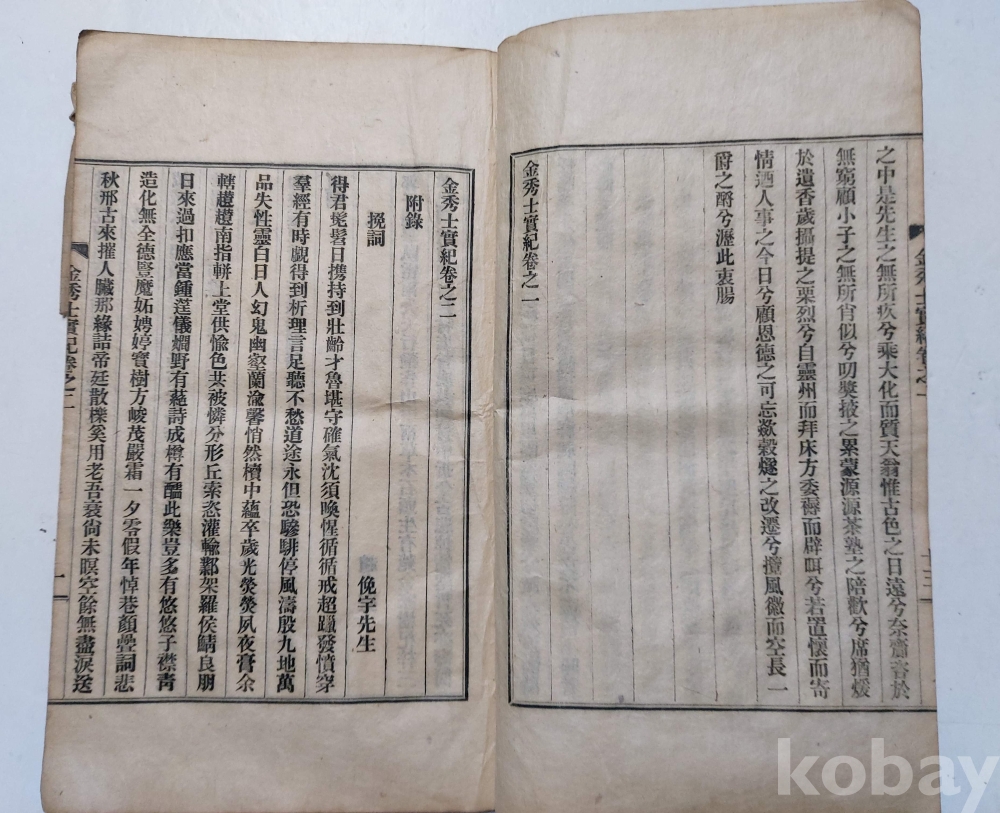 之中是先生之無所疚兮乘大化而質天翁惟古色之日遠兮奈蕭
於
無窮顧小子之無所肖似兮叨奬掖之累蒙源源茶塾之陪歡兮席猶煖
於遺香歲攝提之栗烈兮自靈州而拜床方委褥而辟咡兮若置懷而寄
情洒人事之今日兮顧恩德之可忘欻穀燧之改遷兮
風徽而空長一
爵之酹兮瀝此衷腸
金秀士實紀卷之一
金秀士實紀卷之一
十三
金秀士實紀卷之二
附錄
挽詞
俛宇先生
得君髧髫日携持到壯齡才魯堪守確氣沈須喚惺循循戒超躐發憤穿
羣經有時覷得到析理言足聽不愁道途永但恐驂騑停風濤殷九地萬
品失性靈白日人幻鬼幽壑蘭渝馨悄然櫝中蘊卒歲光熒熒夙夜膏余
轄趲趲南指軿上堂供愉色共被憐分形丘索恣灌輸鄴架羅侯鯖良朋
日來過扣應當鍾莛儀嫺野有蕝詩成樽有醽此樂豈多有悠悠子襟靑
造化無全德豎魔妬娉婷寶樹方峻茂嚴霜一夕零假年悼巷顏疊詞悲
秋邢古來摧人臟那緣詰帝廷散櫟奚用老吾衰尙未暝空餘無盡淚送
金秀士實紀卷之二
一
kobay